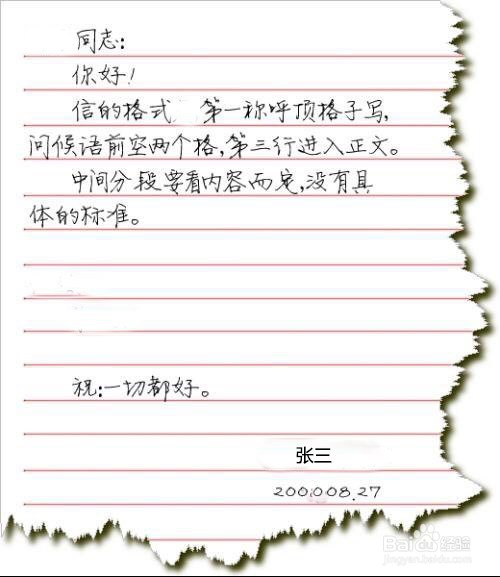 同志:
你好!
信的格式 第一称呼顶格子写,
问候语前空两个格,第三行进入正文。
中间分段要看内容而定,没有具
体的标准。
祝:一切都好。
张三
200008.27
Baidu经验
jingyan.baidu.com